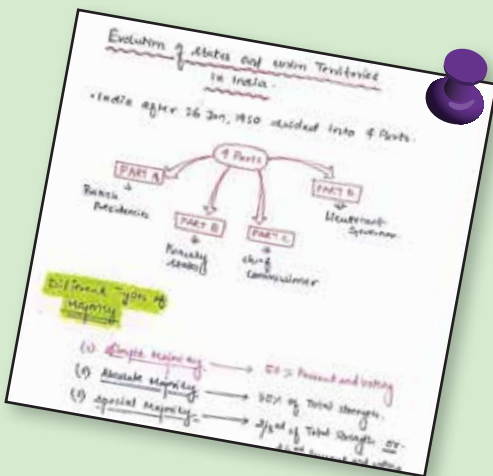 Evolution of States and union Territories
in India.
• India after 26 Jan, 1950 divided into 4 Parts.
4 Parts
PART A
British Presidencies
PART B
Princely States
PART C
chief Commissioner
PART D
Lieutenant Governor
Different Types of
Majority
(1) Simple Majority → 50% Present and voting
(2) Absolute Majority → 50% of Total strength.
(3) Special Majority → 2/3rd of Total Strength or